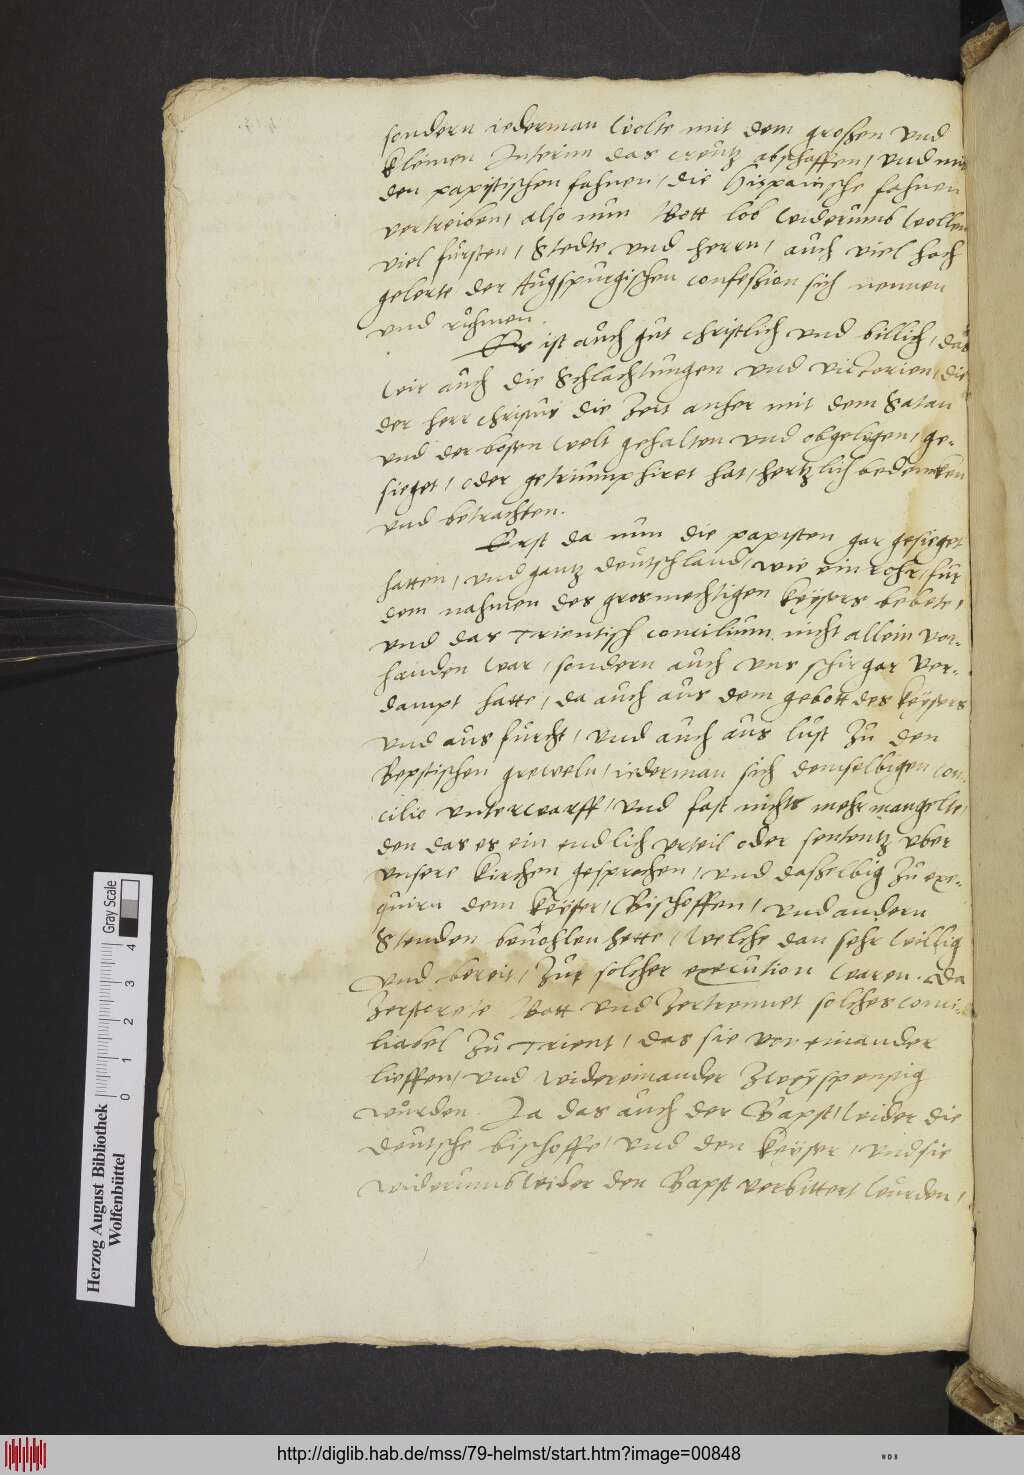 sondern iederman wolte mit dem großen vnd
kleinen Interim das creutz abschaffen, vnd mit
den papistischen fahnen, die Hispanische fahnen
vertreiben, also nun Gott lob widerumb wollen
viel fursten, Stedte vnd herrn, auch viel hoch
gelerte der Augspurgischen confeßion sich nennen
vnd rühmen.
Es ist auch gut christlich vnd billich, das
wir auch die Schlachtungen vnd victorien, die
der herr christus die zeit anher mit dem Satan
vnd der bosen welt gehalten vnd obgelegen, ge-
sieget, oder getriumphiret hat, hertzlich bedencken
vnd betrachten.
Erst da nun die papisten gar gesieget
hatten, vnd gantz deutschland, wie ein rohr, fur
dem nahmen des grosmechtigen keysers bebete,
vnd das Trientisch concilium nicht allein vor-
handen war, sondern auch vns schir gar ver-
dampt hatte, da auch aus dem gebott des keysers
vnd aus furcht, vnd auch aus lust zu den
Bepstischen greweln, iederman sich demselbigen con-
cilio vnterwarff, vnd fast nichts mehr mangelte,
den das es ein endlich vrteil oder sententz vber
vnsere kirchen gesprochen, vnd daßelbig zu exe-
quirn dem keyser, Bischoffen, vnd andern
Stenden beuohlen hette, welche dan sehr willig
vnd bereit, zur solcher execution waren. Da
zerstorete Gott vnd zertrennet solches conci-
liabel zu Trient, das sie von einander
lieffen, vnd widereinander zweyspensig
wurden. Ja das auch der Bapst, wider die
deutsche bischoffe, vnd den keyser, vnd sie
widerumb wider den Bapst verbittert wurden,
Herzog August Bibliothek
Wolfenbüttel
Gray Scale
0 1 2 3 4
http://diglib.hab.de/mss/79-helmst/start.htm?image=00848